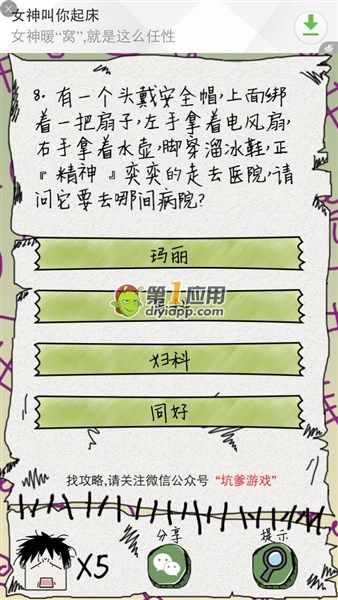 女神叫你起床
女神暖“窝”,就是这么任性
8. 有一个头戴安全帽,上面绑
着一把扇子,左手拿着电风扇,
右手拿着水壶,脚穿溜冰鞋,正
『精神』奕奕的走去医院,请
问它要去哪间病院?
玛丽
第1应用
diyiapp.com
妇科
同好
找攻略,请关注微信公众号 “坑爹游戏”
分享
提示
X5